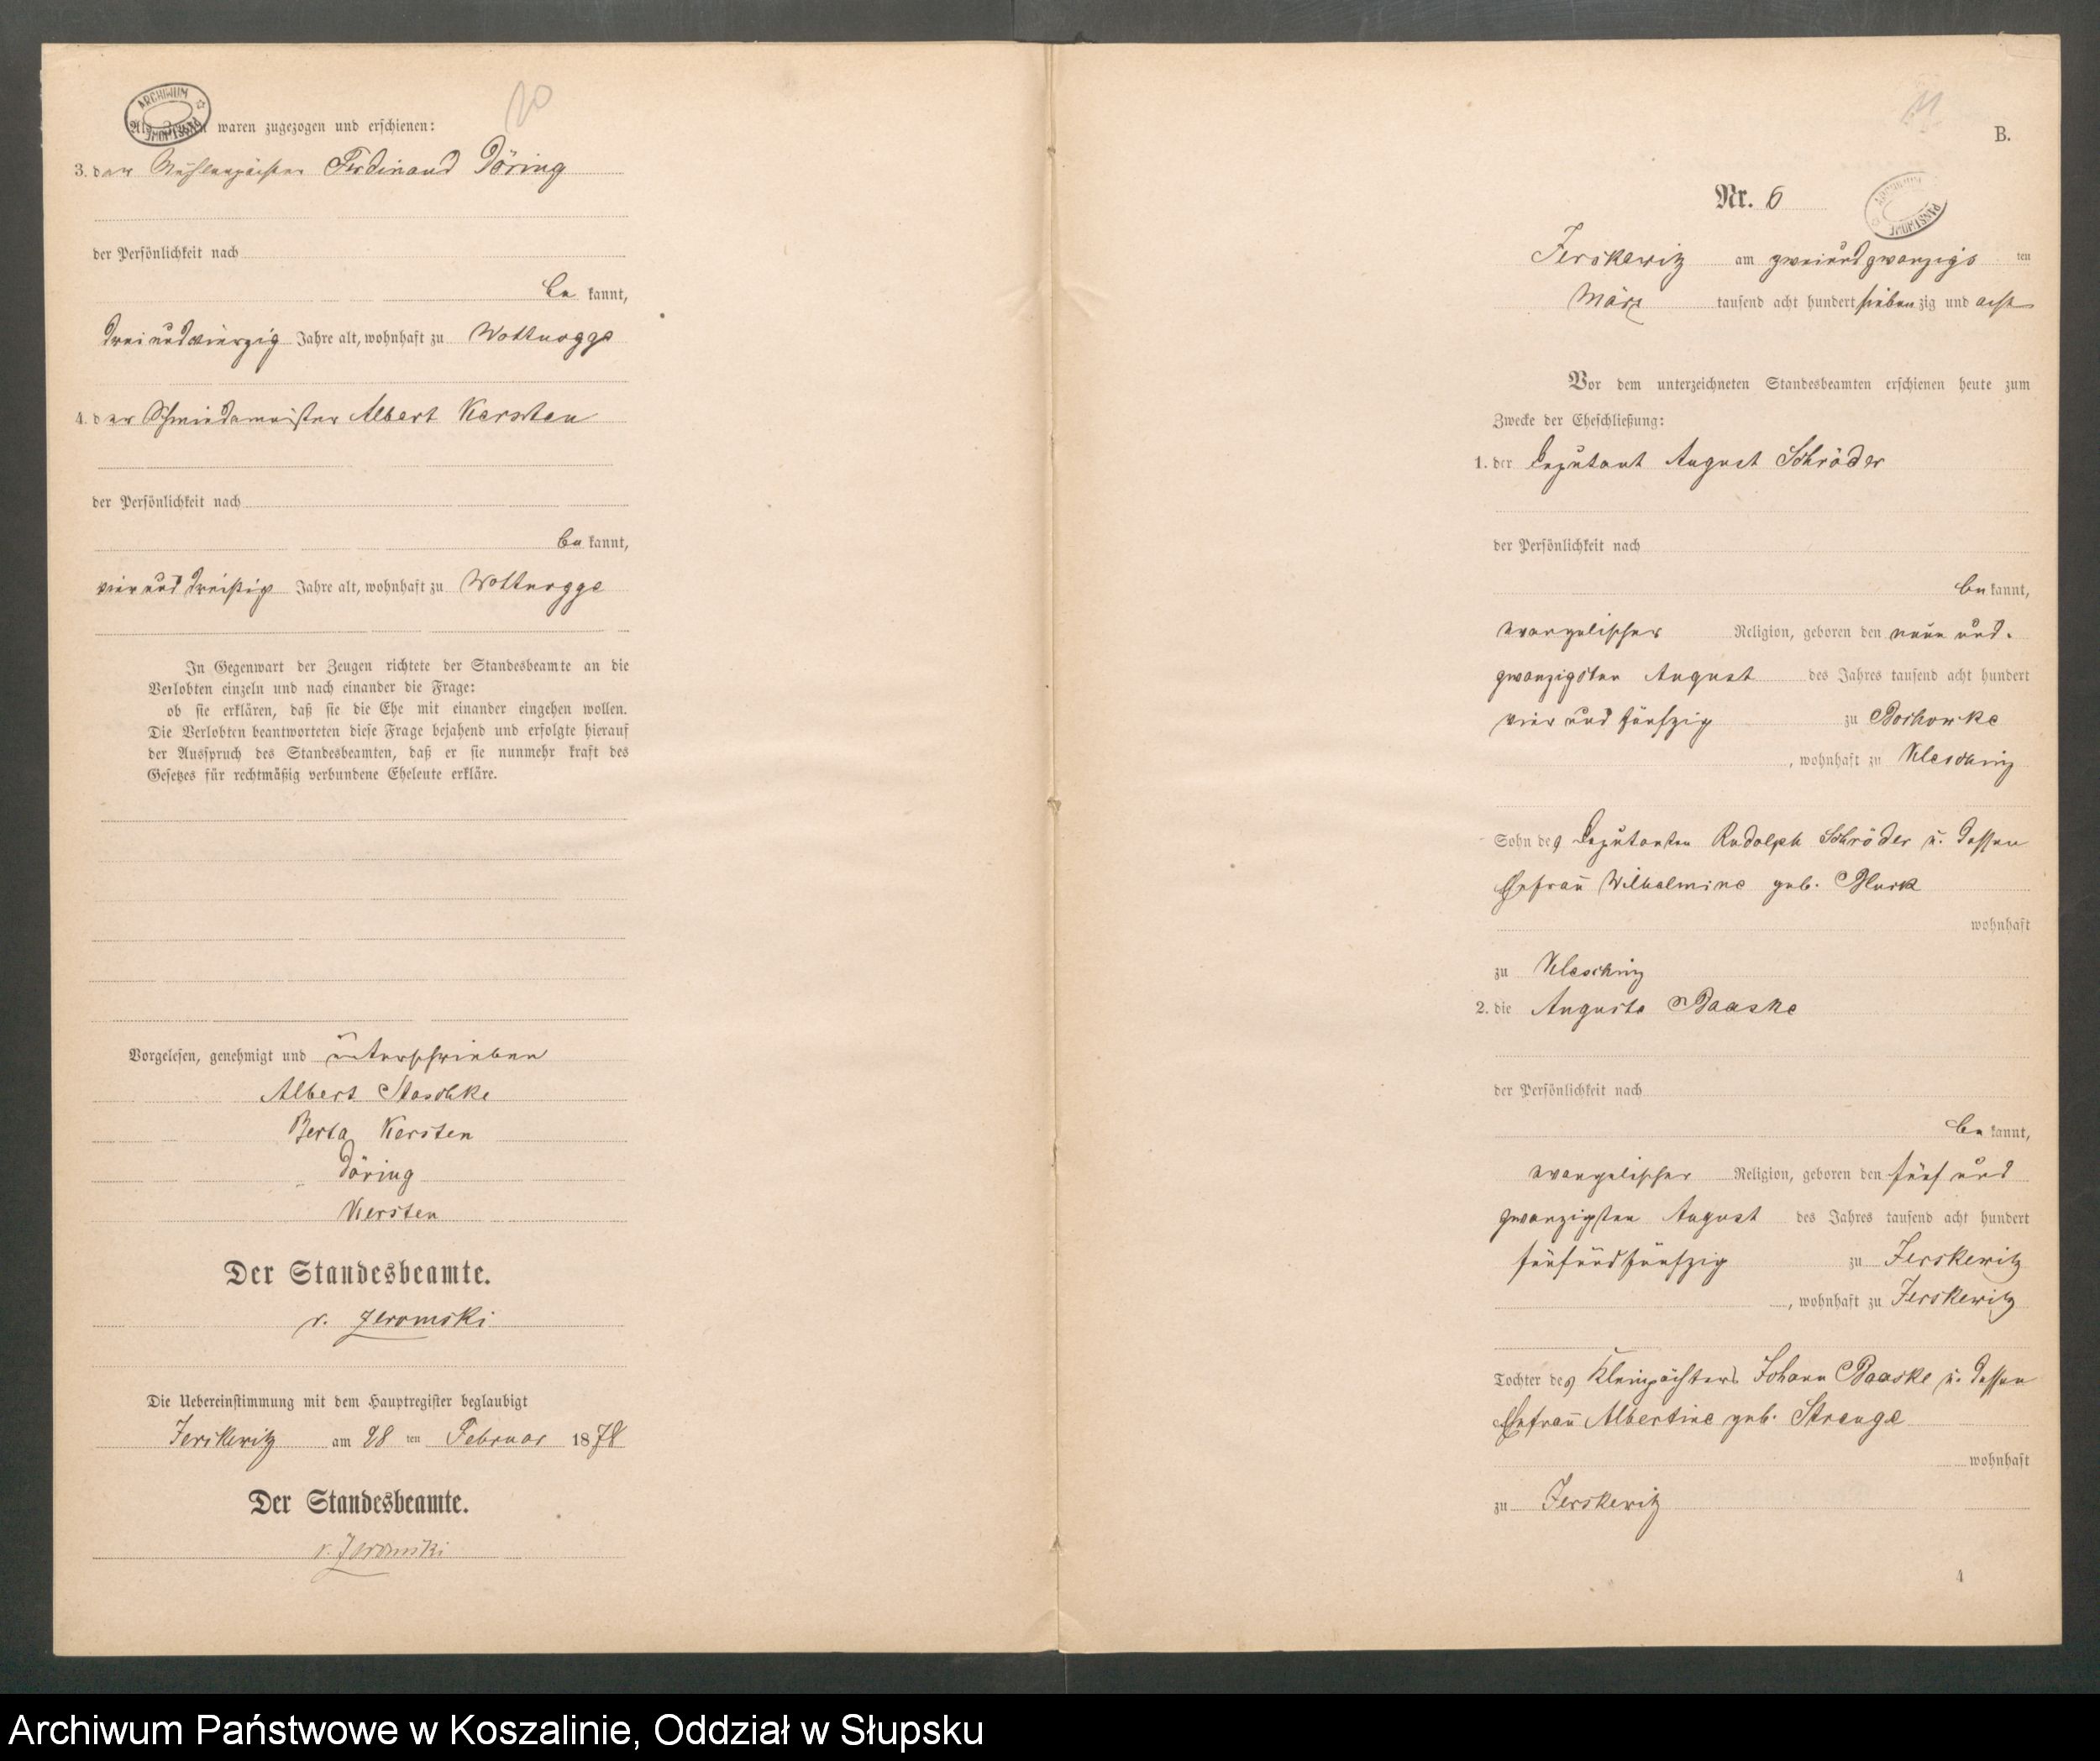 20
ARCHIWUM
PAŃSTWOWE
waren zugezogen und erschienen:
3. der Mühlenpächter Ferdinand Döring
der Persönlichkeit nach
be kannt,
drei und vierzig Jahre alt, wohnhaft zu Wottnogge
4. der Schmiedemeister Albert Kersten
der Persönlichkeit nach
be kannt,
vier und dreißig Jahre alt, wohnhaft zu Wottnogge
In Gegenwart der Zeugen richtete der Standesbeamte an die
Verlobten einzeln und nach einander die Frage:
ob sie erklären, daß sie die Ehe mit einander eingehen wollen.
Die Verlobten beantworteten diese Frage bejahend und erfolgte hierauf
der Ausspruch des Standesbeamten, daß er sie nunmehr kraft des
Gesetzes für rechtmäßig verbundene Eheleute erkläre.
Vorgelesen, genehmigt und unterschrieben
Albert Staschke
Berta Kersten
Döring
Kersten
Der Standesbeamte.
v. Jeromski
Die Uebereinstimmung mit dem Hauptregister beglaubigt
Jerskewitz am 28 ten Februar 1878
Der Standesbeamte.
v. Jeromski
B.
Nr. 6
ARCHIWUM
PAŃSTWOWE
Jerskewitz am zweiundzwanzigs ten
März tausend acht hundert siebenzig und acht
Vor dem unterzeichneten Standesbeamten erschienen heute zum
Zwecke der Eheschließung:
1. der Deputant August Schröder
der Persönlichkeit nach
be kannt,
evangelischer Religion, geboren den neun und
zwanzigsten August des Jahres tausend acht hundert
vier und fünfzig zu Bochowke
, wohnhaft zu Kleschinz
Sohn des Deputanten Rudolph Schröder u. dessen
Ehefrau Wilhelmine geb.
wohnhaft
zu Kleschinz
2. die Auguste Baaske
der Persönlichkeit nach
be kannt,
evangelischer Religion, geboren den fünf und
zwanzigsten August des Jahres tausend acht hundert
fünfundfünfzig zu Jerskewitz
, wohnhaft zu Jerskewitz
Tochter des Kleinpächters Johann Baaske u. dessen
Ehefrau Albertine geb. Strenge
wohnhaft
zu Jerskewitz
Archiwum Państwowe w Koszalinie, Oddział w Słupsku